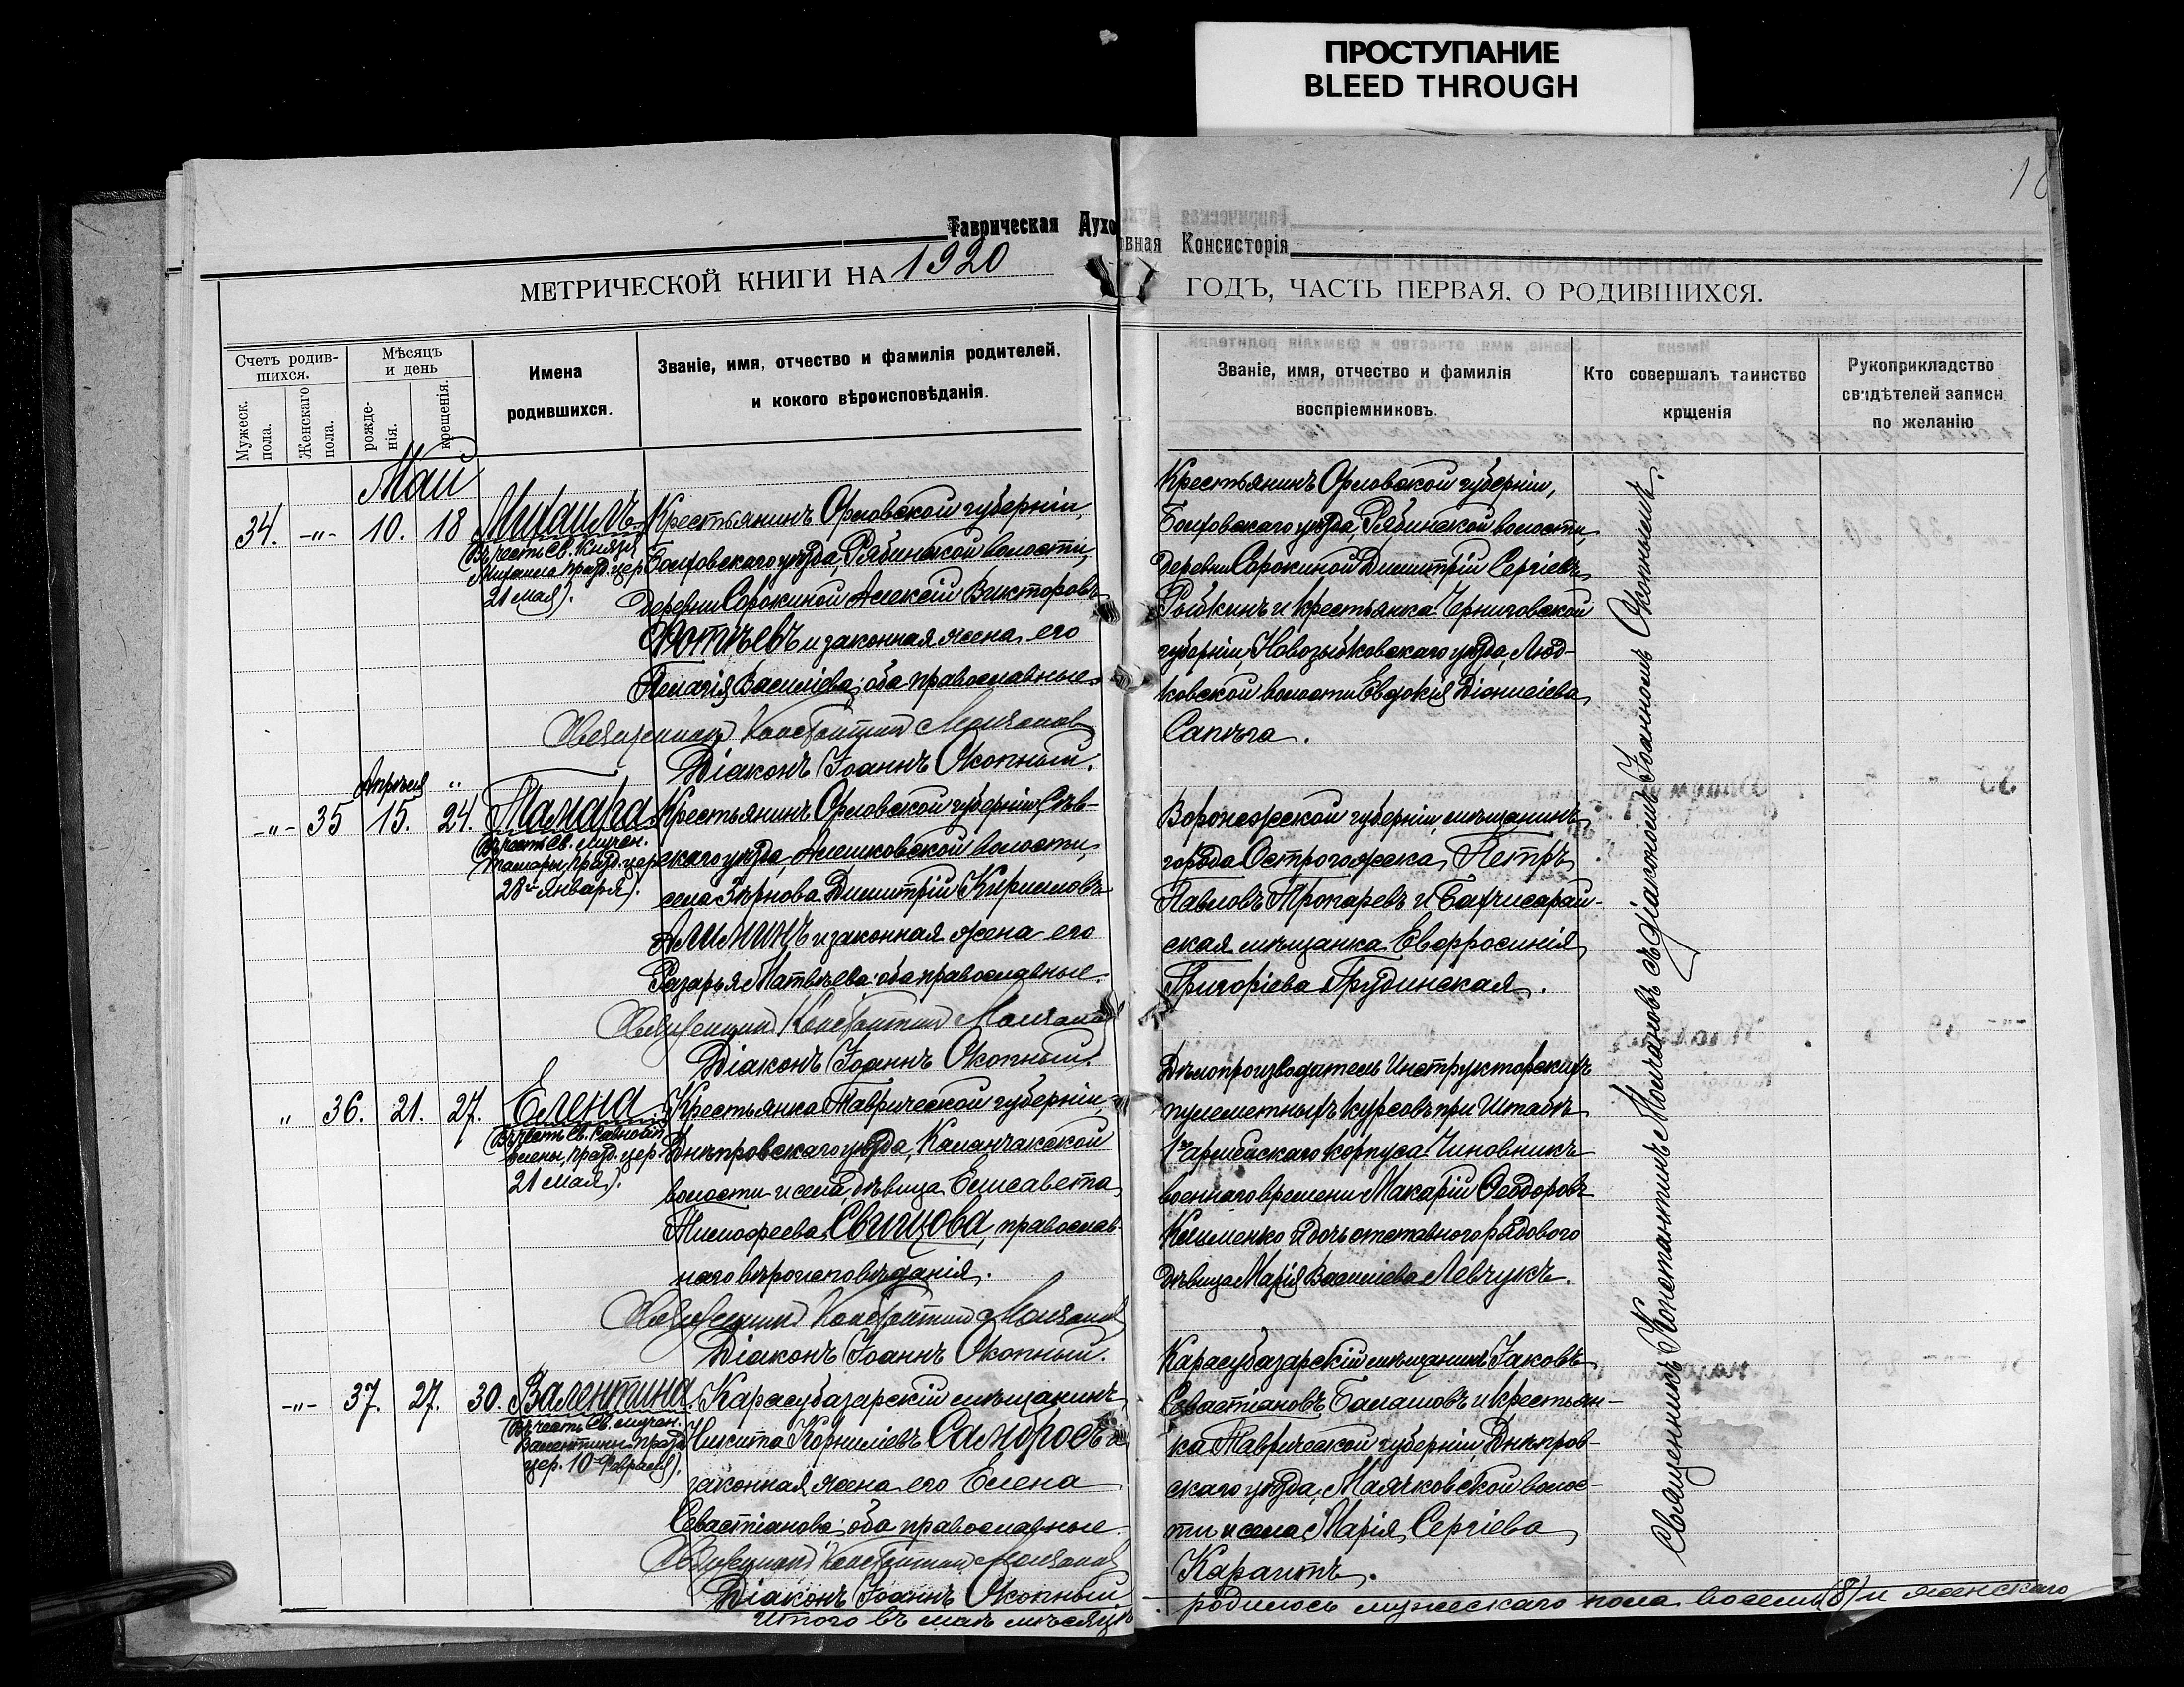 ПРОСТУПАНИЕ
BLEED THROUGH
18
Таврическая Духовная Консисторія
МЕТРИЧЕСКОЙ КНИГИ НА 1920
ГОДЪ, ЧАСТЬ ПЕРВАЯ, О РОДИВШИХСЯ.
Счетъ родив-
шихся.
Мужеск.
пола.
Женскаго
пола.
Мѣсяцъ
и день
рожде-
нія.
крещенія.
Имена
родившихся.
Званіе, имя, отчество и фамилія родителей,
и кокого вѣроисповѣданія.
Званіе, имя, отчество и фамилія
воспріемниковъ.
Кто совершалъ таинство
крщенія
Рукоприкладство
свидѣтелей записи
по желанію
Май
34. -"- 10. 18 Михаилъ
(Въ честь Св. Князя
Михаила, празд. цер.
21 мая).
Крестьянинъ Орловской губерніи,
Болховскаго уѣзда, Рябинской волости,
деревни Сорокиной Алексій Викторовъ
Фотѣевъ и законная жена его
Пелагія Василіева; оба православные.
Священникъ Константинъ Молчановъ
Діаконъ Іоаннъ Окопный.
Крестьянинъ Орловской губерніи,
Болховскаго уѣзда, Рябинской волости,
деревни Сорокиной Димитрій Сергіевъ
Рыбкинъ и крестьянка Черниговской
губерніи, Новозыбковскаго уѣзда, Люд-
ковской волости Евдокія Діонисіева
Сапѣга.
Апрѣля "
-"- 35 15. 24. Тамара
(Въ честь Св. мучен.
Тамары, празд. цер.
28го января).
Крестьянинъ Орловской губерніи, Сѣв-
скаго уѣзда, Алешковской волости,
села Зѣрнова Димитрій Кирилловъ
Алимицъ и законная жена его
Матвѣева: оба православные.
Священникъ Константинъ Молчановъ
Діаконъ Іоаннъ Окопный.
Воронежской губерніи мѣщанинъ
города Острогожска, Петръ
Павловъ Прокаревъ и Бахчисарай-
ская мѣщанка Евфросинія
Григоріева Грудинская.
" 36. 21. 27. Елена.
(Въ честь Св. Равноап.
Елены, празд. цер.
21 мая).
Крестьянка Таврической губерніи,
Днѣпровскаго уѣзда, Каланчакской
волости и села, дѣвица Елисавета
Тимофеева Свищова, православ-
наго вѣроисповѣданія.
Священникъ Константинъ Молчановъ
Діаконъ Іоаннъ Окопный.
Дѣлопроизводитель Инструкторскихъ
пулеметныхъ курсовъ при Штабѣ
1го армейскаго корпуса Чиновникъ
военнаго времени Макарій Ѳеодоровъ
Клименко и дочь отставного рядового
дѣвица Марія Василіева Левчукъ.
-"- 37. 27. 30. Валентина.
(Въ честь Св. мучен.
Валентины празд.
цер. 10 февраля).
Карасубазарскій мѣщанинъ
Никита Корниліевъ Самбросъ и
законная жена его Елена
Севастіанова: оба православные.
Священникъ Константинъ Молчановъ
Діаконъ Іоаннъ Окопный
Карасубазарскій мѣщанинъ Іаковъ
Севастіановъ Балашовъ и крестьян-
ка Таврической губерніи, Днѣпров-
скаго уѣзда, Маячковской волос-
ти и села, Марія Сергіева
Карагить.
Священникъ Константинъ Молчановъ съ діакономъ Іоанномъ Окопнымъ.
Итого въ маѣ мѣсяцѣ родилось мужескаго пола восемь (8) и женскаго